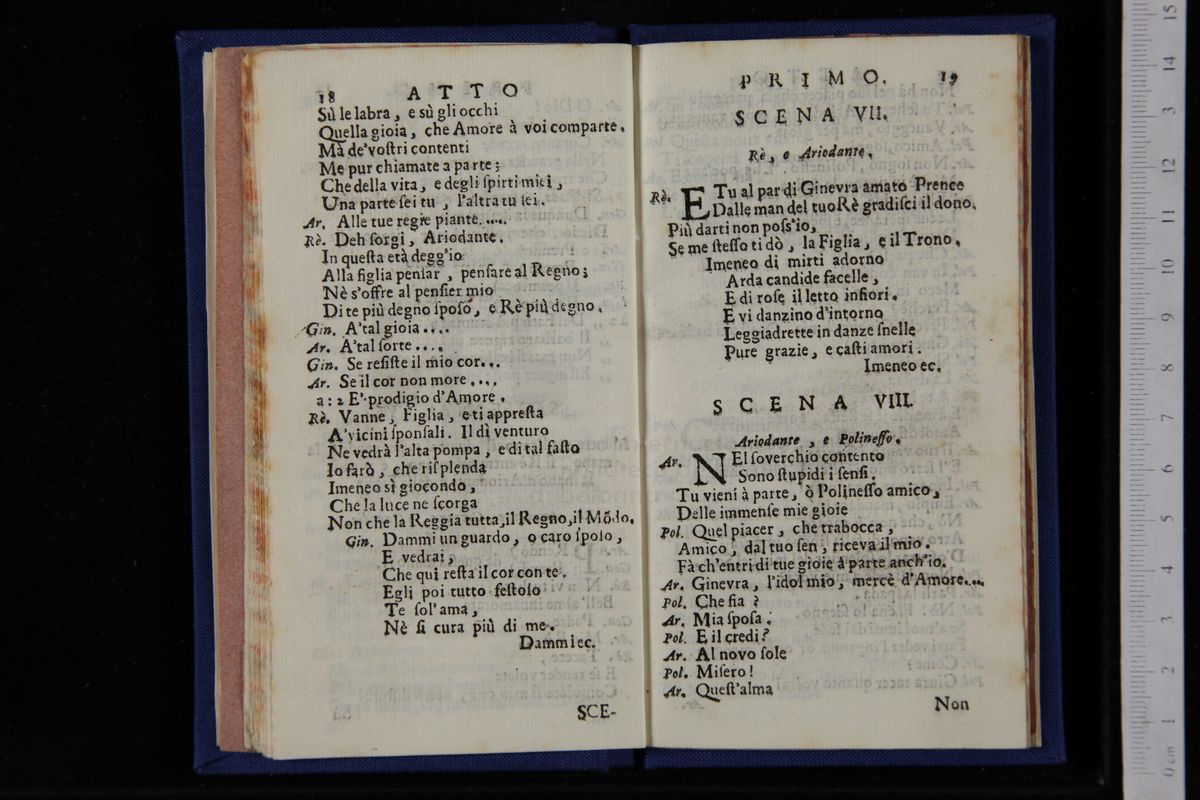 18 ATTO
Sù le labra, e sù gli occhi
Quella gioia, che Amore à voi comparte.
Mà de'voſtri contenti
Me pur chiamate a parte;
Che della vita, e degli ſpirti miei,
Una parte ſei tu, l'altra tu ſei.
Ar. Alle tue regie piante.....
Rè. Deh ſorgi, Ariodante.
In queſta età degg'io
Alla figlia penſar, penſare al Regno;
Nè s'offre al penſier mio
Di te più degno ſpoſo, e Rè più degno.
Gin. A'tal gioia....
Ar. A'tal ſorte....
Gin. Se reſiſte il mio cor...
Ar. Se il cor non more....
a: 2 E' prodigio d'Amore.
Rè. Vanne, Figlia, e ti appreſta
A'vicini ſponſali. Il dì venturo
Ne vedrà l'alta pompa, e di tal faſto
Io farò, che riſplenda
Imeneo sì giocondo,
Che la luce ne ſcorga
Non che la Reggia tutta, il Regno, il Mõdo.
Gin. Dammi un guardo, o caro ſpoſo,
E vedrai,
Che quì reſta il cor con te.
Egli poi tutto feſtoſo
Te ſol'ama,
Nè ſi cura più di me.
Dammi ec.
SCE-
PRIMO. 19
SCENA VII.
Rè, e Ariodante.
Rè. E Tu al par di Ginevra amato Prence
Dalle man del tuo Rè gradiſci il dono.
Più darti non poſs'io,
Se me ſteſſo ti dò, la Figlia, e il Trono.
Imeneo di mirti adorno
Arda candide facelle,
E di roſe il letto infiori.
E vi danzino d'intorno
Leggiadrette in danze ſnelle
Pure grazie, e caſti amori.
Imeneo ec.
SCENA VIII.
Ariodante, e Polineſſo.
Ar. NEl ſoverchio contento
Sono ſtupidi i ſenſi.
Tu vieni à parte, ò Polineſſo amico,
Delle immenſe mie gioie
Pol. Quel piacer, che trabocca,
Amico, dal tuo ſen, riceva il mio.
Fà ch'entri di tue gioie à parte anch'io.
Ar. Ginevra, l'idol mio, mercè d'Amore....
Pol. Che fia?
Ar. Mia ſpoſa.
Pol. E il credi?
Ar. Al novo ſole
Pol. Miſero!
Ar. Queſt'alma
Non